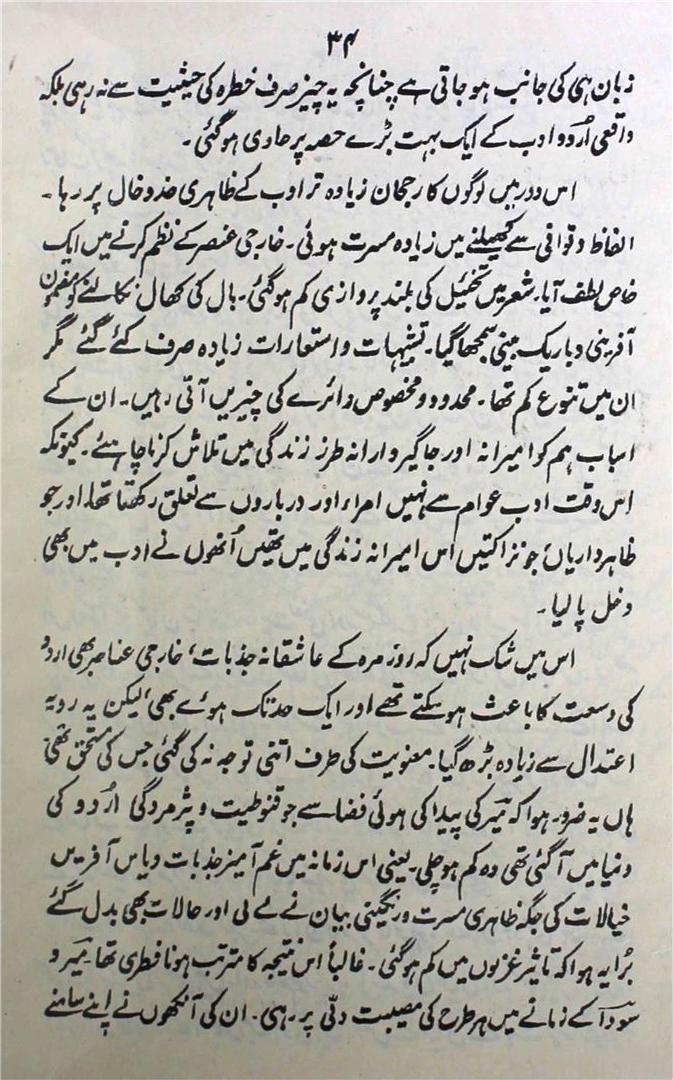 ۳۴
زبان ہی کی جانب ہو جاتی ہے چنانچہ یہ چیز صرف خطرہ کی حیثیت سے نہ رہی بلکہ
واقعی اُردو ادب کے ایک بہت بڑے حصہ پر حاوی ہو گئی۔
اس دور میں لوگوں کا رجحان زیادہ تر ادب کے ظاہری خد و خال پر رہا۔
الفاظ و قوافی سے کھیلنے میں زیادہ مسرت ہوئی۔ خارجی عنصر کے نظم کرنے میں ایک
خاص لطف آیا۔ شعر میں تخئیل کی بلند پروازی کم ہو گئی۔ بال کی کھال نکالنے کو مضمون
آفرینی و باریک بینی سمجھا گیا۔ تشبیہات و استعارات زیادہ صرف کئے گئے مگر
ان میں تنوع کم تھا۔ محدود و مخصوص دائرے کی چیزیں آتی رہیں۔ ان کے
اسباب ہم کو امیرانہ اور جاگیردارانہ طرز زندگی میں تلاش کرنا چاہیئے۔ کیونکہ
اس وقت ادب عوام سے نہیں امراء اور درباروں سے تعلق رکھتا تھا، اور جو
ظاہر داریاں جو نزاکتیں اس امیرانہ زندگی میں تھیں اُنھوں نے ادب میں بھی
دخل پا لیا۔
اس میں شک نہیں کہ روز مرہ کے عاشقانہ جذبات، خارجی عناصر بھی اردو
کی وسعت کا باعث ہو سکتے تھے اور ایک حد تک ہوئے بھی، لیکن یہ رویہ
اعتدال سے زیادہ بڑھ گیا۔ معنویت کی طرف اتنی توجہ نہ کی گئی جس کی مستحق تھی
ہاں یہ ضرور ہوا کہ میرؔ کی پیدا کی ہوئی فضا سے جو قنوطیت و پژمردگی اُردو کی
دنیا میں آ گئی تھی وہ کم ہو چلی۔ یعنی اس زمانہ میں غم آمیز جذبات و یاس آفریں
خیالات کی جگہ ظاہری مسرت و رنگینی بیان نے لے لی اور حالات بھی بدل گئے
بُرا یہ ہوا کہ تاثیر غزلوں میں کم ہو گئی۔ غالباً اس نتیجہ کا مترتب ہونا فطری تھا۔ میرؔ و
سوداؔ کے زمانے میں ہر طرح کی مصیبت دلّی پر رہی۔ ان کی آنکھوں نے اپنے سامنے